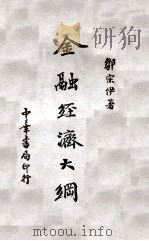 鄒宗伊著
金融經濟大綱
中華書局印行